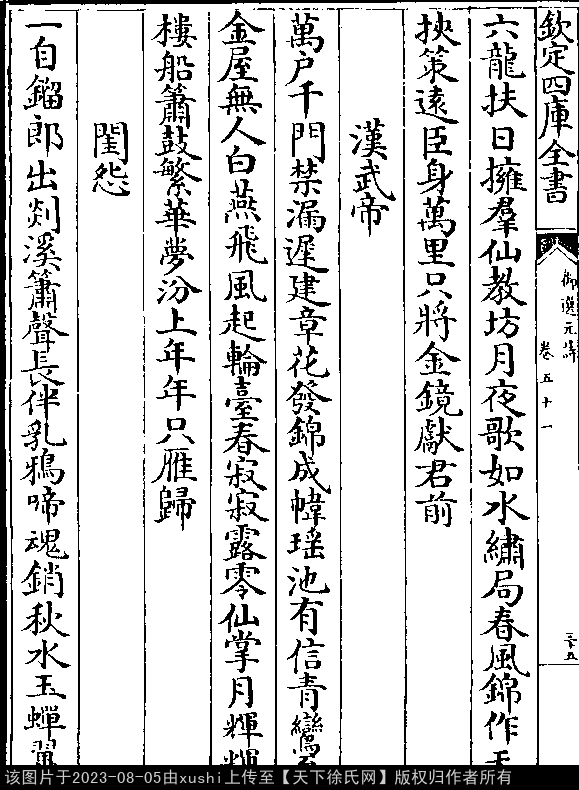 欽定四庫全書
御選元詩
卷五十一
三十五
六龍扶日擁羣仙教坊月夜歌如水繡局春風錦作天
挾策遠臣身萬里只將金鏡獻君前
漢武帝
萬户千門禁漏遲建章花發錦成幃瑶池有信青鸞
金屋無人白燕飛風起輪臺春寂寂露零仙掌月輝輝
樓船簫鼓繁華夢汾上年年只雁歸
閨怨
一自鎦郎出剡溪簫聲長伴乳鴉啼魂銷秋水玉蟬翼
该图片于2023-08-05由xushi上传至【天下徐氏网】版权归作者所有